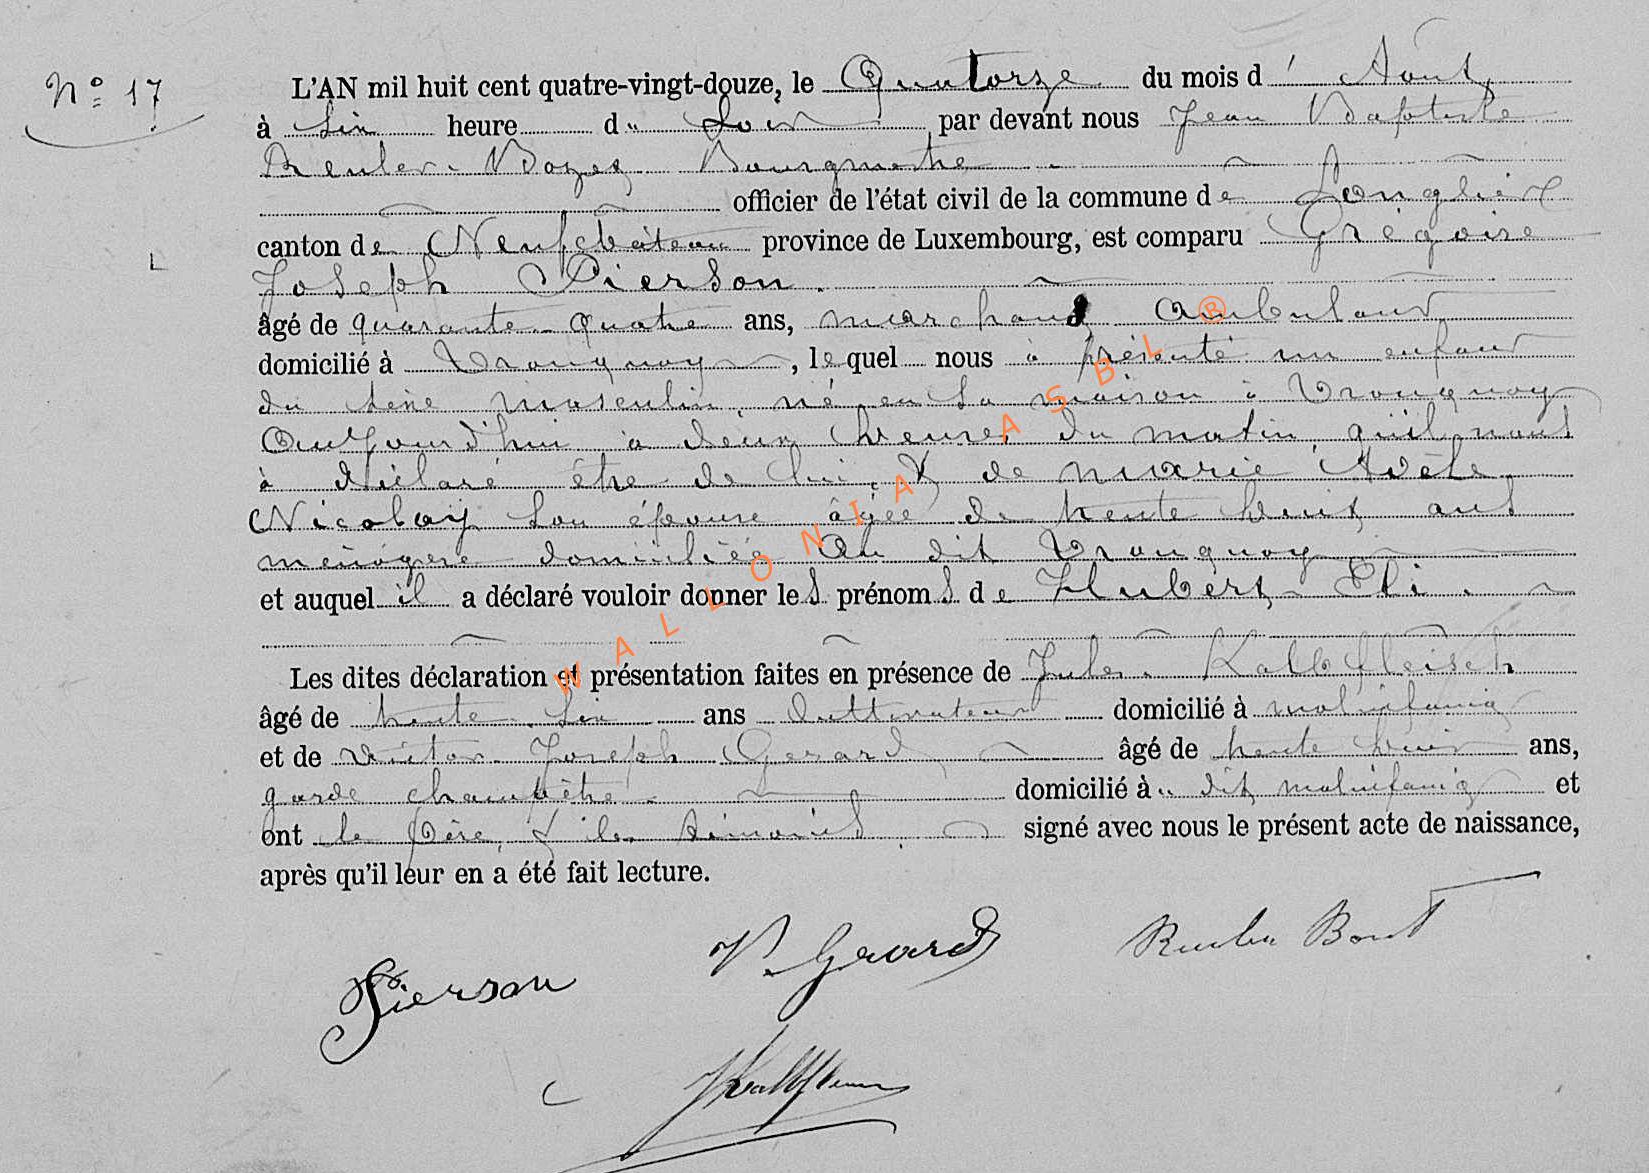 N° 17
L'AN mil huit cent quatre-vingt-douze, le Quatorze du mois d' Août
à six heure du Soir, par devant nous Jean Baptiste
Reuter Bourgmestre
officier de l'état civil de la commune de Longlier
canton de Neufchâteau province de Luxembourg, est comparu Grégoire
Joseph Pierson.
âgé de quarante quatre ans, marchand ambulant
domicilié à Tronquoy, lequel nous à présenté un enfant
du sexe masculin, né en sa maison à Tronquoy
Aujourd'hui à deux heures du matin qu'il nous
à déclaré être de lui & de marie Adèle
Nicolay son épouse âgée de trente huit ans
ménagère domiciliée au dit Tronquoy
et auquel il a déclaré vouloir donner les prénoms de Hubert Eli.
Les dites déclaration et présentation faites en présence de Jules Kalbfleisch
âgé de trente six ans domicilié à molinfaing
et de Victor Joseph Gerard âgé de trente huit ans,
garde champêtre domicilié à dit molinfaing et
ont le Père, & les témoins signé avec nous le présent acte de naissance,
après qu'il leur en a été fait lecture.
Pierson
V. Gerard
WALLONIA ASBL ®